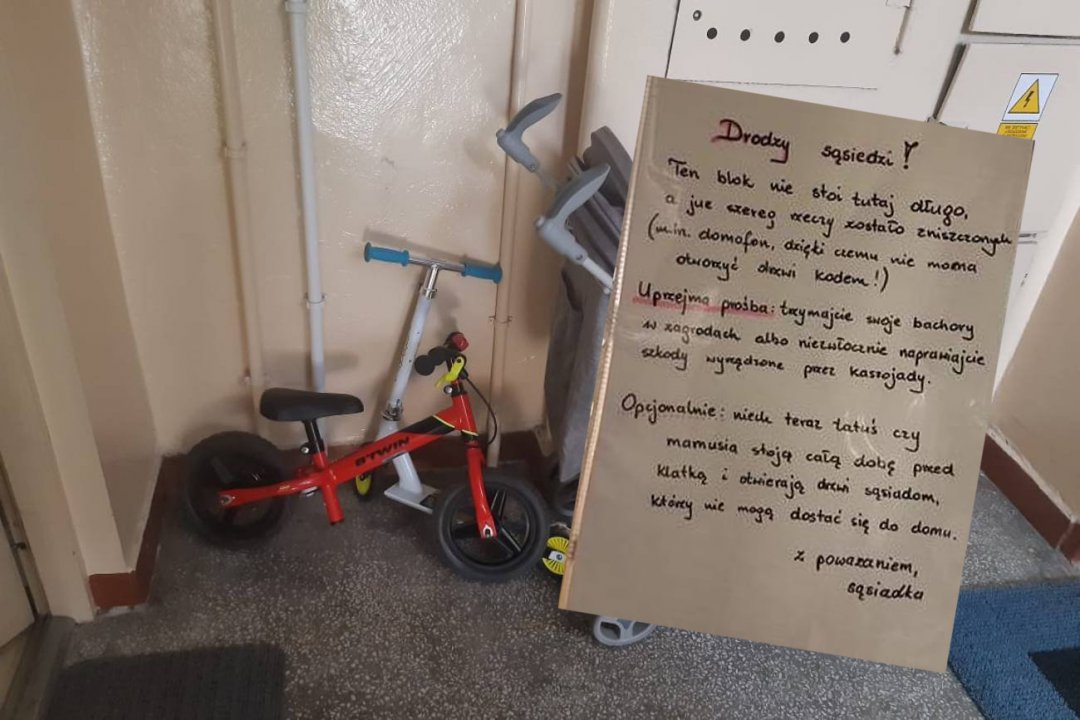 Drodzy sąsiedzi!
Ten blok nie stoi tutaj długo,
a już szereg rzeczy zostało zniszczonych
(m.in. domofon, dzięki czemu nie można
otworzyć drzwi kodem!)
Uprzejma prośba: trzymajcie swoje bachory
w zagrodach albo niezwłocznie naprawiajcie
szkody wyrządzone przez kaszojady.
Opcjonalnie: niech teraz tatuś czy
mamusia stoją całą dobę przed
klatką i otwierają drzwi sąsiadom,
którzy nie mogą dostać się do domu.
z poważaniem,
sąsiadka
B'TWIN